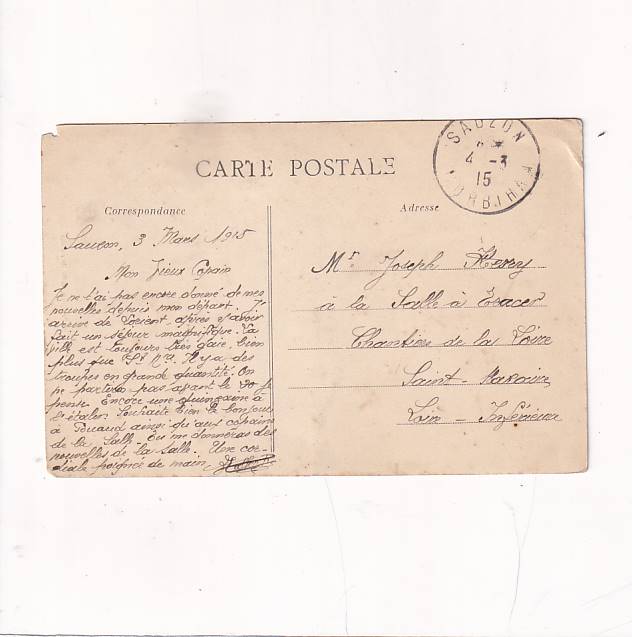 CARTE POSTALE
SAUZON
4 - 3
15
MORBIHAN
Correspondance
Adresse
Sauzon, 3 Mars 1915
Mon Vieux Copain
Je ne t'ai pas encore donné de mes
nouvelles depuis mon départ. J'
arrive de Lorient, après y avoir
fait un séjour magnifique. La
ville est toujours très gaie, bien
plus que St N. Il y a des
troupes en grande quantité. On
ne partira pas avant le 20 je
pense. Encore une quinzaine à
. Souhaite bien le bonjour
à ainsi qu'aux copains
de la Salle. Tu me donneras des
nouvelles de la Salle. Une cor-
diale poignée de main.
Mr Joseph Henry
à la Salle à Tracer
Chantiers de la Loire
Saint-Nazaire
Loire-Inférieure